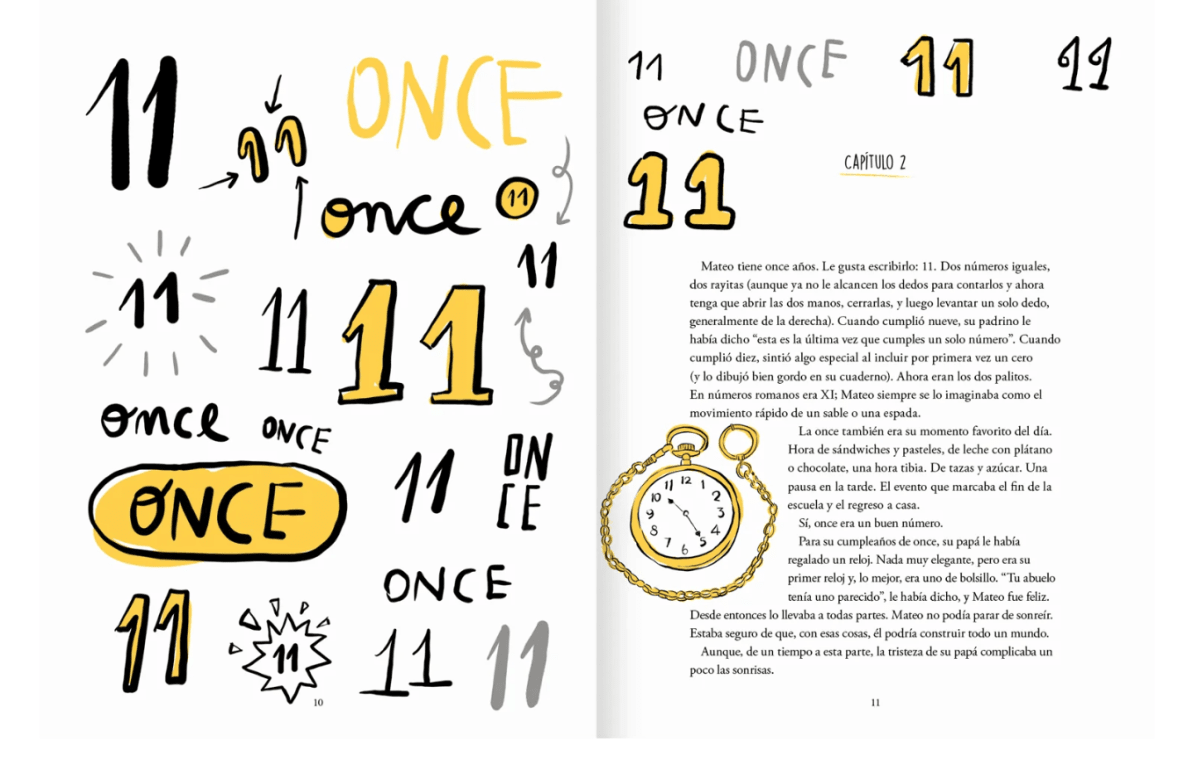 11
11
ONCE
once
11
11
11
11
11
once
ONCE
ONCE
11
ON
CE
11
11
ONCE
11
11
10
11
ONCE
11
11
ONCE
11
CAPÍTULO 2
Mateo tiene once años. Le gusta escribirlo: 11. Dos números iguales,
dos rayitas (aunque ya no le alcancen los dedos para contarlos y ahora
tenga que abrir las dos manos, cerrarlas, y luego levantar un solo dedo,
generalmente de la derecha). Cuando cumplió nueve, su padrino le
había dicho “esta es la última vez que cumples un solo número”. Cuando
cumplió diez, sintió algo especial al incluir por primera vez un cero
(y lo dibujó bien gordo en su cuaderno). Ahora eran los dos palitos.
En números romanos era XI; Mateo siempre se lo imaginaba como el
movimiento rápido de un sable o una espada.
La once también era su momento favorito del día.
Hora de sándwiches y pasteles, de leche con plátano
o chocolate, una hora tibia. De tazas y azúcar. Una
pausa en la tarde. El evento que marcaba el fin de la
escuela y el regreso a casa.
Sí, once era un buen número.
Para su cumpleaños de once, su papá le había
regalado un reloj. Nada muy elegante, pero era su
primer reloj y, lo mejor, era uno de bolsillo. “Tu abuelo
tenía uno parecido”, le había dicho, y Mateo fue feliz.
Desde entonces lo llevaba a todas partes. Mateo no podía parar de sonreír.
Estaba seguro de que, con esas cosas, él podría construir todo un mundo.
Aunque, de un tiempo a esta parte, la tristeza de su papá complicaba un
poco las sonrisas.
12
1
2
3
4
5
6
7
8
9
10
11
11